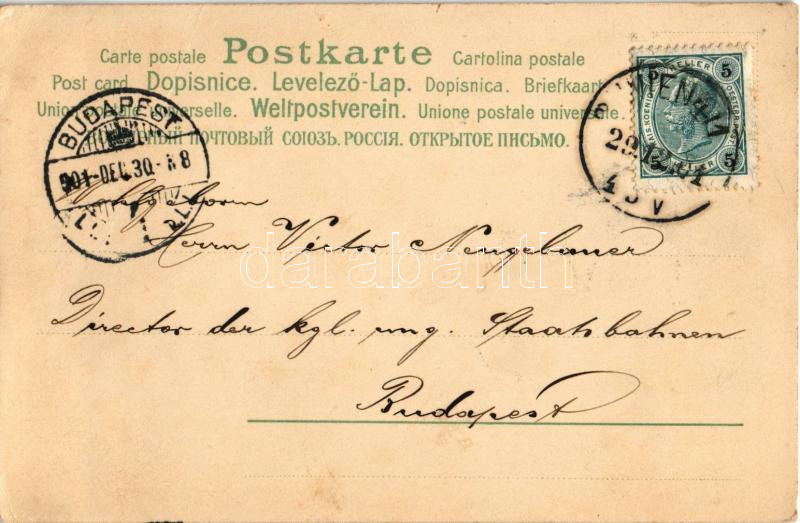 Carte postale Postkarte Cartolina postale
Post card Dopisnice. Levelező-Lap. Dopisnica. Briefkaart
Union postale universelle. Weltpostverein. Unione postale universale.
ПОЧТОВЫЙ СОЮЗЪ. РОССІЯ. ОТКРЫТОЕ ПИСЬМО.
BUDAPEST
901-DEC.30.
WIEN
29.12.01
5 HELLER 5
5
Herrn Victor Neugebauer
Director der kgl. ung. Staatsbahnen
Budapest
darabanth